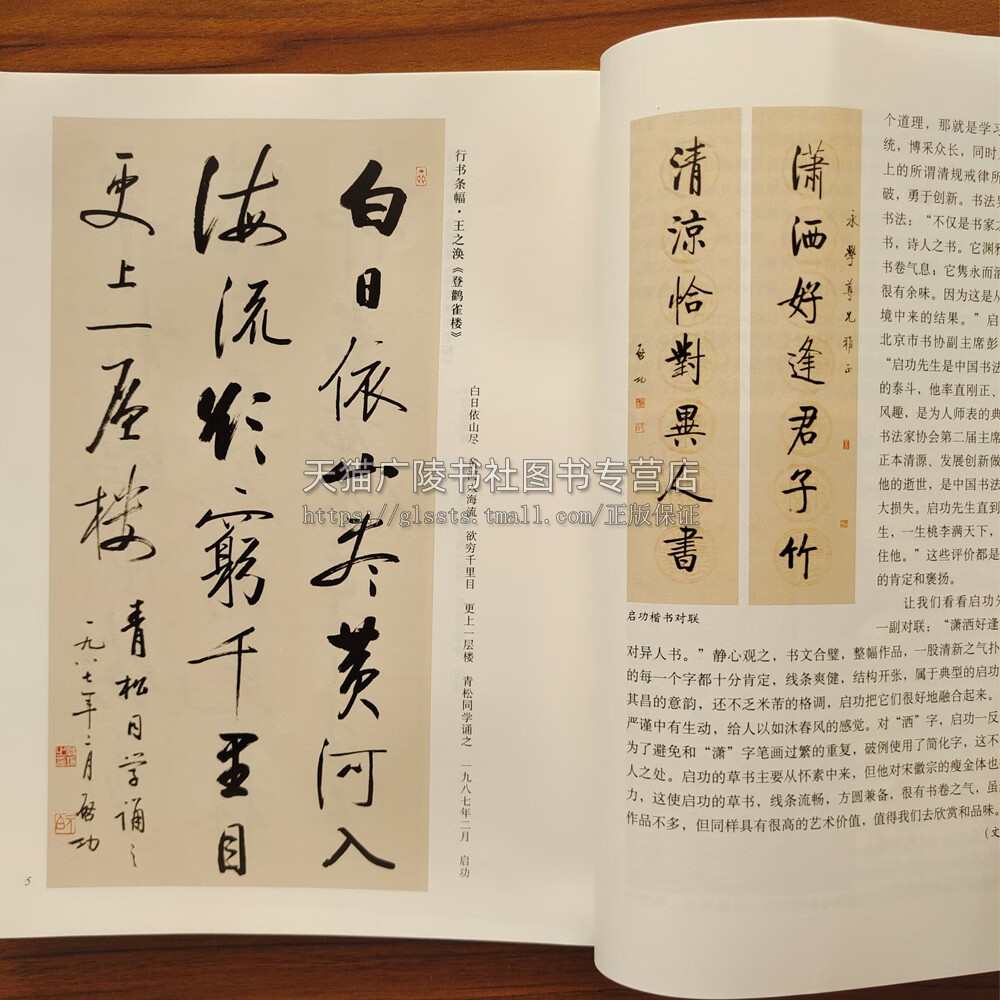 白日依山尽黄河入
海流欲穷千里目
更上一层楼
青松同学诵之
一九八七年二月 启功
行书条幅·王之涣《登鹳雀楼》
白日依山尽 黄河入海流 欲穷千里目 更上一层楼 青松同学诵之 一九八七年二月 启功
5
潇洒好逢君子竹
永学尊兄雅正
清凉恰對異人書
啟功
启功楷书对联
个道理，那就是学习
统，博采众长，同时
上的所谓清规戒律所
破，勇于创新。书法界
书法：“不仅是书家之
书，诗人之书。它渊雅
书卷气息；它隽永而潇
很有余味。因为这是从
境中来的结果。”启
北京市书协副主席彭
“启功先生是中国书法
的泰斗，他率直刚正、
风趣，是为人师表的典
书法家协会第二届主席
正本清源、发展创新做
他的逝世，是中国书法
大损失。启功先生直到
生，一生桃李满天下，
住他。”这些评价都是
的肯定和褒扬。
让我们看看启功先
一副对联：“潇洒好逢
对异人书。”静心观之，书文合璧，整幅作品，一股清新之气扑
的每一个字都十分肯定，线条爽健，结构开张，属于典型的启功
其昌的意韵，还不乏米芾的格调，启功把它们很好地融合起来。
严谨中有生动，给人以如沐春风的感觉。对“洒”字，启功一反
为了避免和“潇”字笔画过繁的重复，破例使用了简化字，这不
人之处。启功的草书主要从怀素中来，但他对宋徽宗的瘦金体也
力，这使启功的草书，线条流畅，方圆兼备，很有书卷之气，虽
作品不多，但同样具有很高的艺术价值，值得我们去欣赏和品味。
（文
天猫广陵书社图书专营店
https://glssts.tmall.com/正版保证